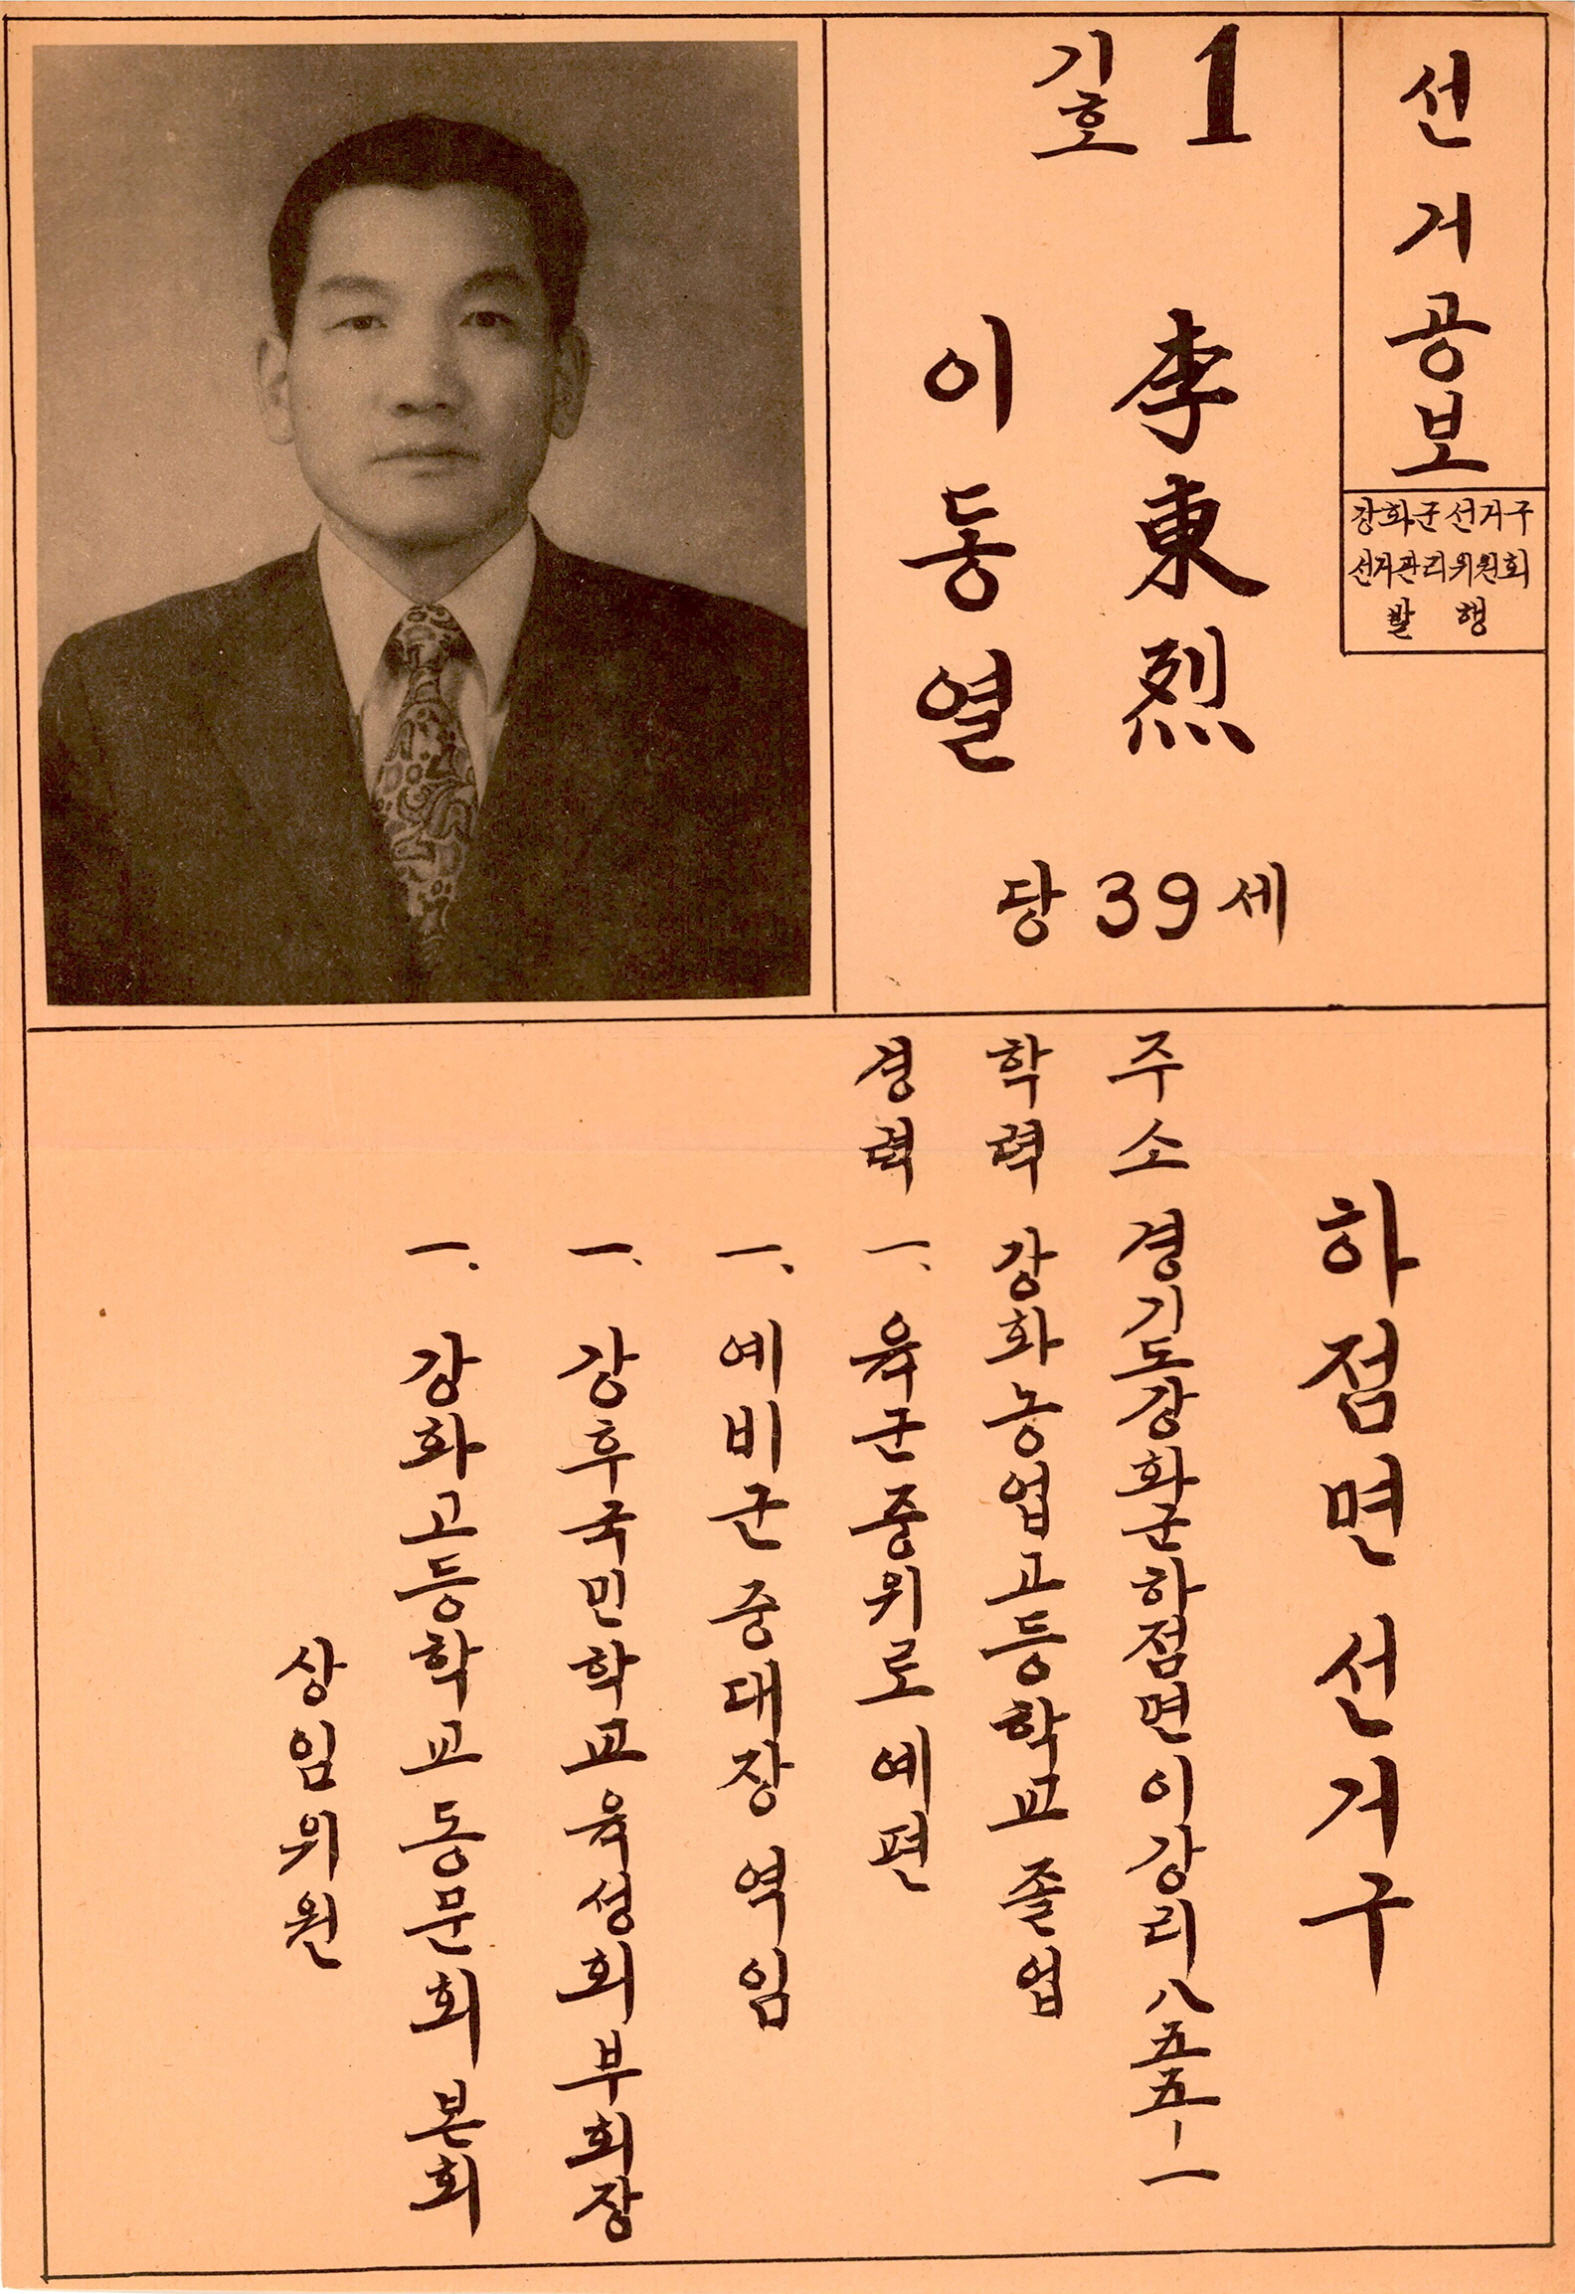 선거공보
강화군선거구
선거관리위원회
발 행
기호 1
李東烈
이동열
당 39 세
하점면 선거구
주소 경기도강화군하점면이강리八五五-一
학력 강화농업고등학교 졸업
경력 一. 육군중위로 예편
一. 예비군 중대장 역임
一. 강후국민학교 육성회 부회장
一. 강화고등학교 동문회 본회
상임위원